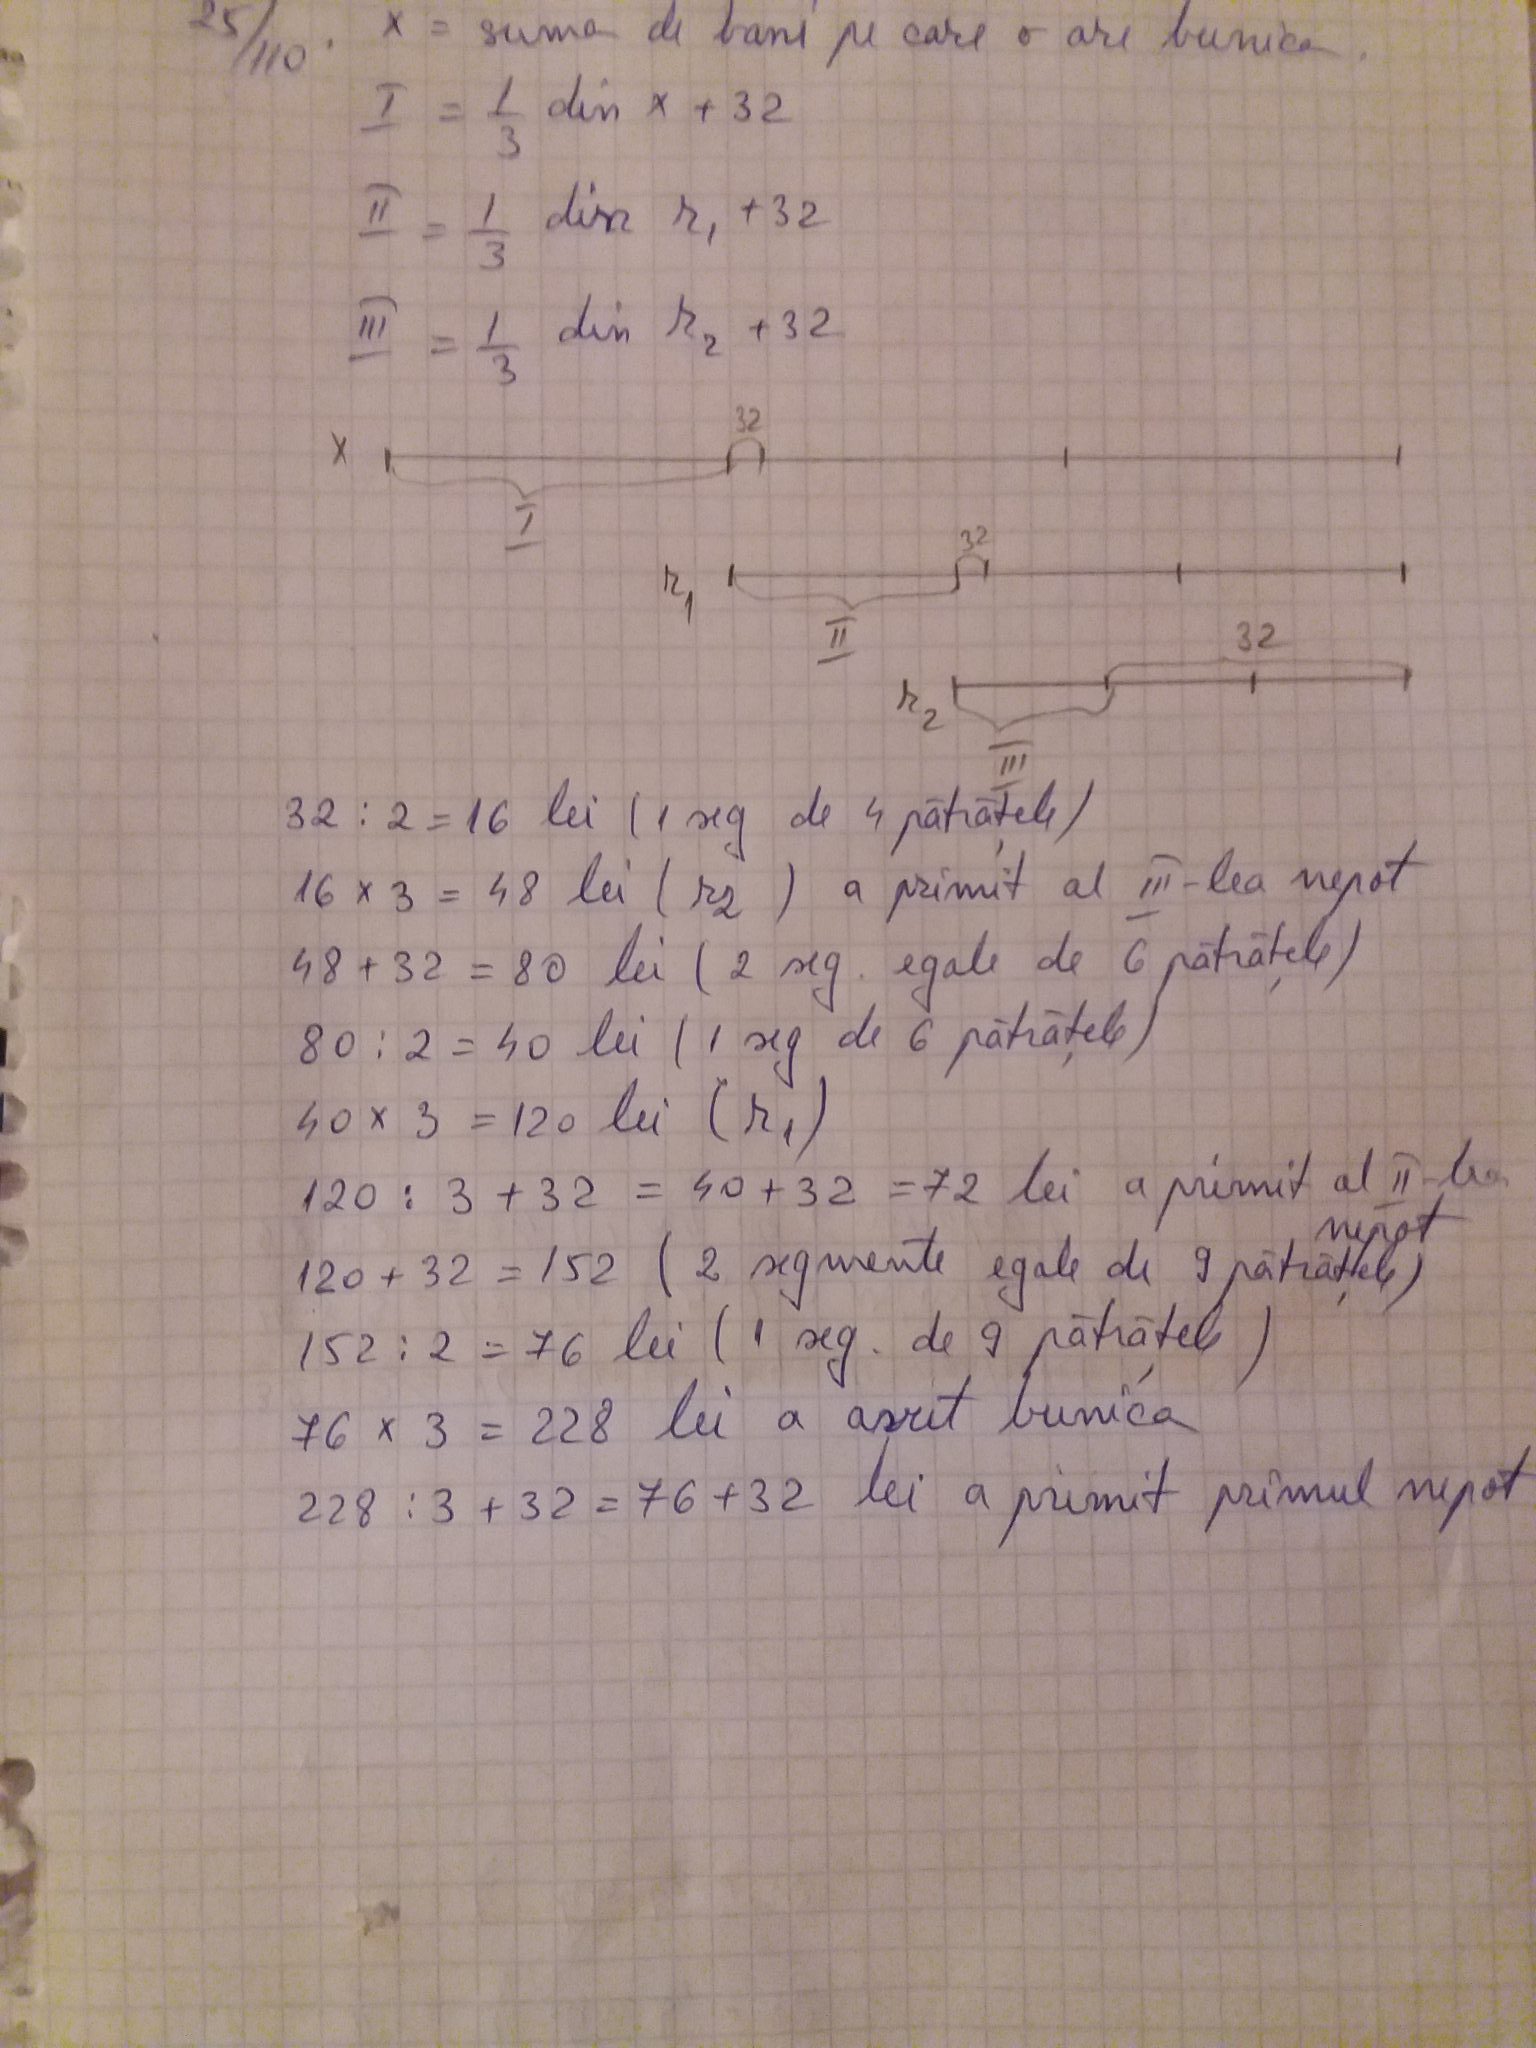 25/110. x = suma de bani pe care o are bunica.
I = 1/3 din x + 32
II = 1/3 din r1 + 32
III = 1/3 din r2 + 32
32
x
I
32
r1
II
32
r2
III
32 : 2 = 16 lei (1 seg de 4 pătrățele)
16 x 3 = 48 lei (r2) a primit al III-lea nepot
48 + 32 = 80 lei (2 seg. egale de 6 pătrățele)
80 : 2 = 40 lei (1 seg de 6 pătrățele)
40 x 3 = 120 lei (r1)
120 : 3 + 32 = 40 + 32 = 72 lei a primit al II-lea
nepot
120 + 32 = 152 (2 segmente egale de 9 pătrățele)
152 : 2 = 76 lei (1 seg. de 9 pătrățele)
76 x 3 = 228 lei a avut bunica
228 : 3 + 32 = 76 + 32 lei a primit primul nepot